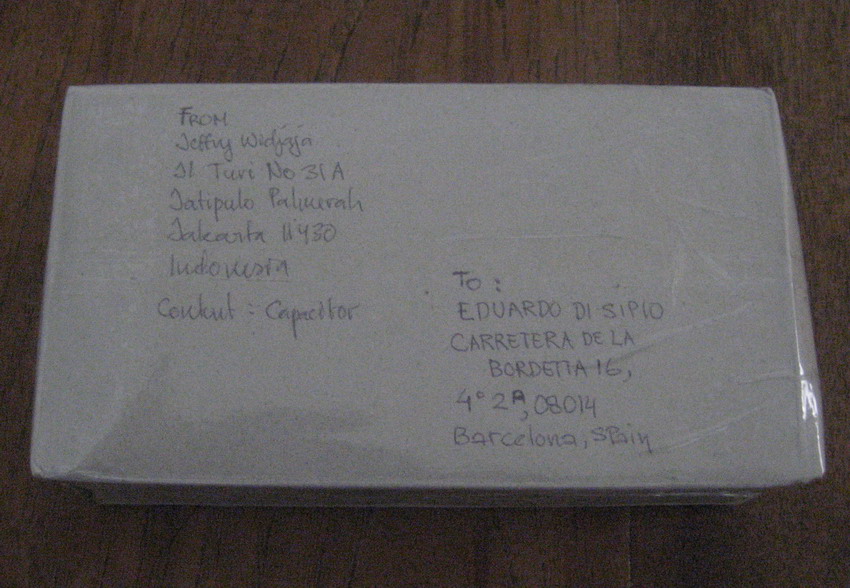 FROM
Jeffry Widjaja
Jl Turi No 31A
Jatipulo Palmerah
Jakarta 11430
Indonesia
Content : Capacitor
To :
EDUARDO DI SIPIO
CARRETERA DE LA
BORDETA 16,
4° 2ª, 08014
Barcelona, SPain